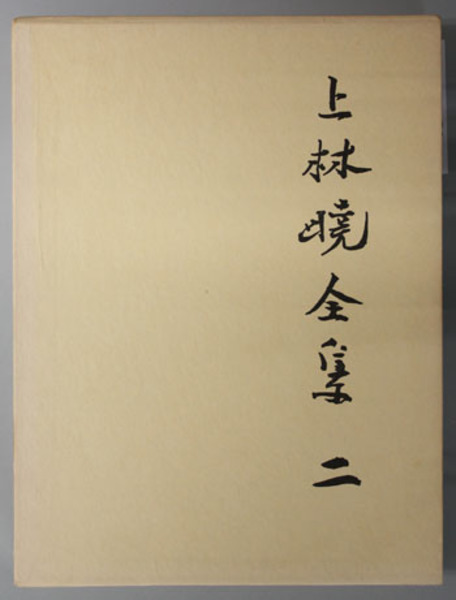 上林曉全集 二